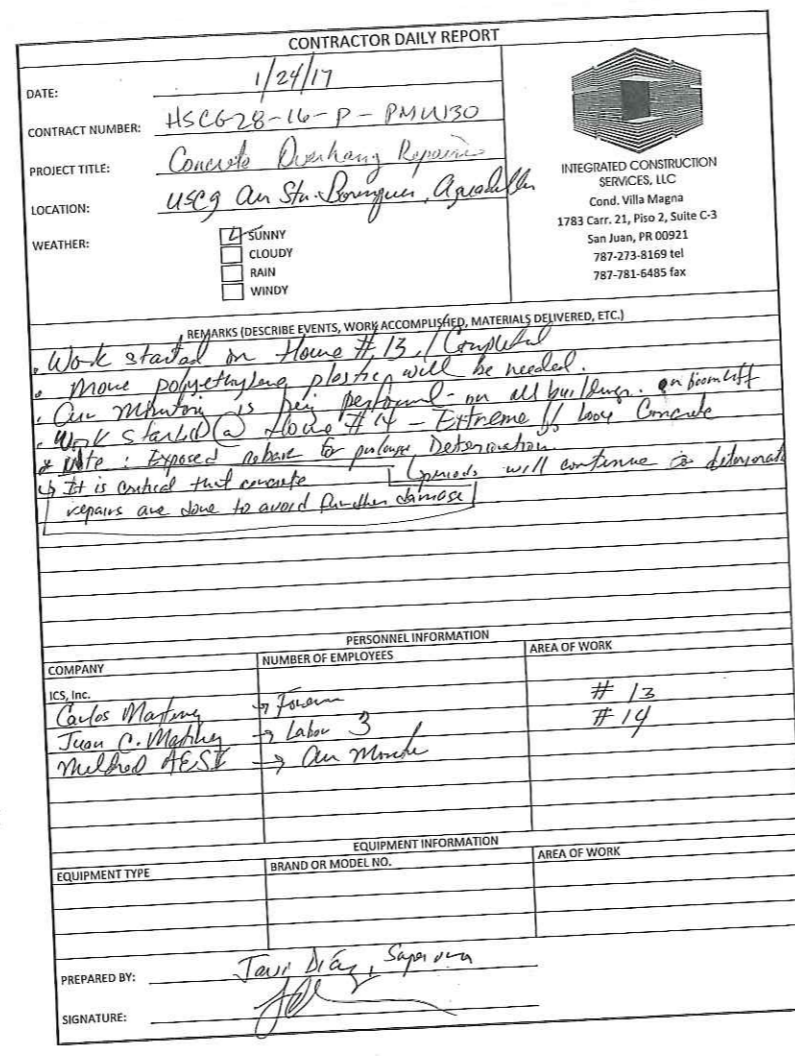 CONTRACTOR DAILY REPORT
DATE: 1/24/17
CONTRACT NUMBER: HSCG28-16-P-PMW130
PROJECT TITLE: Concrete Overhang Repairs
LOCATION: USCG Air Stn. Borinquen, Aguadilla
WEATHER:
SUNNY
CLOUDY
RAIN
WINDY
INTEGRATED CONSTRUCTION
SERVICES, LLC
Cond. Villa Magna
1783 Carr. 21, Piso 2, Suite C-3
San Juan, PR 00921
787-273-8169 tel
787-781-6485 fax
REMARKS (DESCRIBE EVENTS, WORK ACCOMPLISHED, MATERIALS DELIVERED, ETC.)
Work started on House # 13 / Completed
more polyethylene plastic will be needed.
Air Monitoring is being performed - on all buildings. on boom lift
Work started @ House # 14 - Extreme loose Concrete
Note: Exposed rebars for prolonge Deterioration.
periods will continue to deteriorate
It is critical that concrete
repairs are done to avoid further damage
PERSONNEL INFORMATION
COMPANY NUMBER OF EMPLOYEES AREA OF WORK
ICS, Inc.
Carlos Martinez → Foreman # 13
Juan C. Martinez → Labor 3 # 14
Mildred AESI → Air Monitor
EQUIPMENT INFORMATION
EQUIPMENT TYPE BRAND OR MODEL NO. AREA OF WORK
PREPARED BY: Javi Díaz, Supervisor
SIGNATURE: